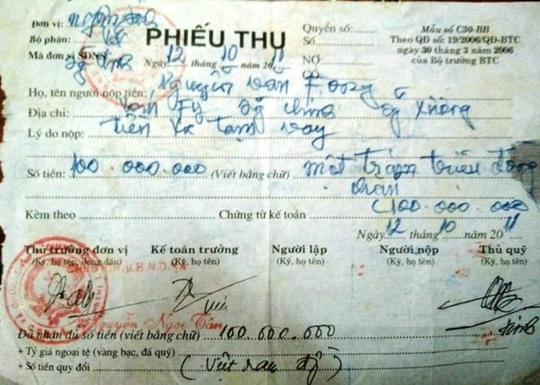 Đơn vị: ngân sách
Bộ phận: xã
Mã đơn vị SDNS:
PHIẾU THU
Ngày 12 tháng 10 năm 2011
Quyển số:
Số
NỢ:
CÓ:
Mẫu số C30-BB
Theo QĐ số: 19/2006/QĐ-BTC
ngày 30 tháng 3 năm 2006
của Bộ trưởng BTC
Họ, tên người nộp tiền: Nguyễn Văn
Địa chỉ:
Lý do nộp: tiền xã tạm vay
Số tiền: 100.000.000 (Viết bằng chữ) một trăm triệu đồng
chẵn
(100.000.000
Kèm theo Chứng từ kế toán
Ngày 12 tháng 10 năm 2011
Thủ trưởng đơn vị Kế toán trưởng Người lập Người nộp Thủ quỹ
(Ký, họ tên, đóng dấu) (Ký, họ tên) (Ký, họ tên) (Ký, họ tên) (Ký, họ tên)
Nguyễn Ngọc Tân
Đã nhận đủ số tiền (viết bằng chữ) 100.000.000
+ Tỷ giá ngoại tệ (vàng bạc, đá quý) (Việt nam đ)
+ Số tiền quy đổi